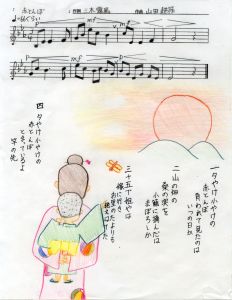 赤とんぼ 作詞 三木露風 作曲 山田耕筰
mf
p
mf
p
一 夕やけ小やけの
赤とんぼ
負われて見たのは
いつの日か
二 山の畑の
桑の実を
小籠に摘んだは
まぼろしか
三 十五で姐やは
嫁に行き
お里のたよりも
絶えはてた
四 夕やけ小やけの
赤とんぼ
とまっているよ
竿の先